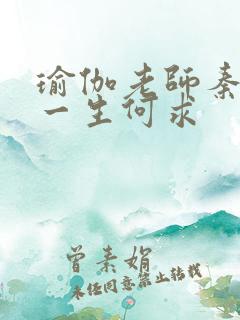 瑜伽老师秦
一生何求
曾素娟
未经同意禁止转载